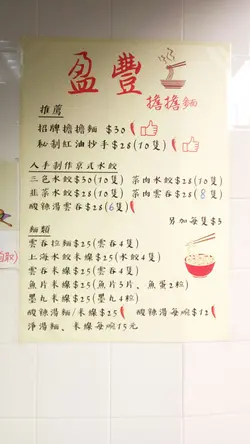 盈豐
擔擔麵
推薦
招牌擔擔麵 $30
秘制紅油抄手 $28(10隻)
人手制作京式水餃
三色水餃$30(10隻) 菜肉水餃$28(10隻)
韭菜水餃$28(10隻) 菜肉雲吞$28(8隻)
酸辣湯雲吞$28(6隻)
另加每隻$3
麵類
雲吞拉麵$25(雲吞4隻)
上海水餃米線$25(水餃4隻)
雲吞米線$25(雲吞4隻)
魚片米線$25(魚片3片、魚蛋2粒)
墨丸米線$25(墨丸4粒)
酸辣湯麵/米線$25 酸辣湯每碗$12
淨湯麵、米線每碗15元
取)